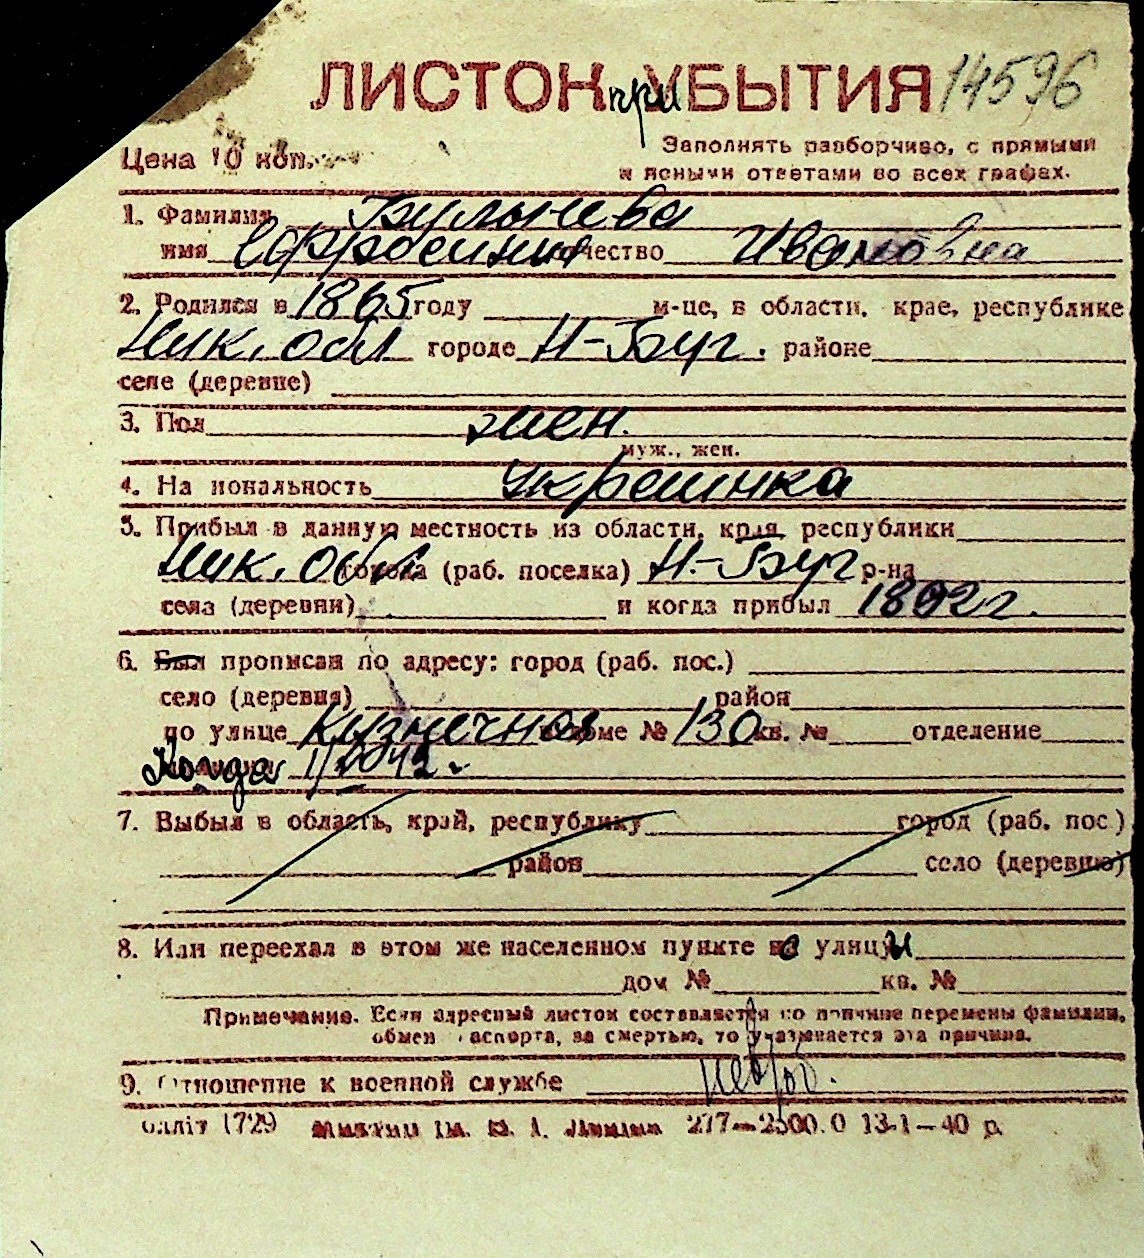 ЛИСТОК при УБЫТИЯ 14596
Цена 10 коп.
Заполнять разборчиво, с прямыми
и ясными ответами во всех графах.
1. Фамилия Булычева
имя Ефросиния отчество Ивановна
2. Родился в 1865 году м-це, в области, крае, республике
Ник. обл городе Н-Буг. районе
селе (деревне)
3. Пол жен.
муж., жен.
4. Национальность Украинка
5. Прибыл в данную местность из области, края, республики
Ник. обл. города (раб. поселка) Н.-Буг р-на
села (деревни) и когда прибыл 1892 г.
6. Был прописан по адресу: город (раб. пос.)
село (деревня) район
по улице Кузнечная доме № 130 кв. № отделение
милиции Когда
7. Выбыл в область, край, республику город (раб. пос.)
район село (деревню)
8. Или переехал в этом же населенном пункте с улицы
дом № кв. №
Примечание. Если адресный листок составляется по причине перемены фамилии,
обмен паспорта, за смертью, то указывается эта причина.
9. Отношение к военной службе
1729 277—2500.0 13-1—40 р.